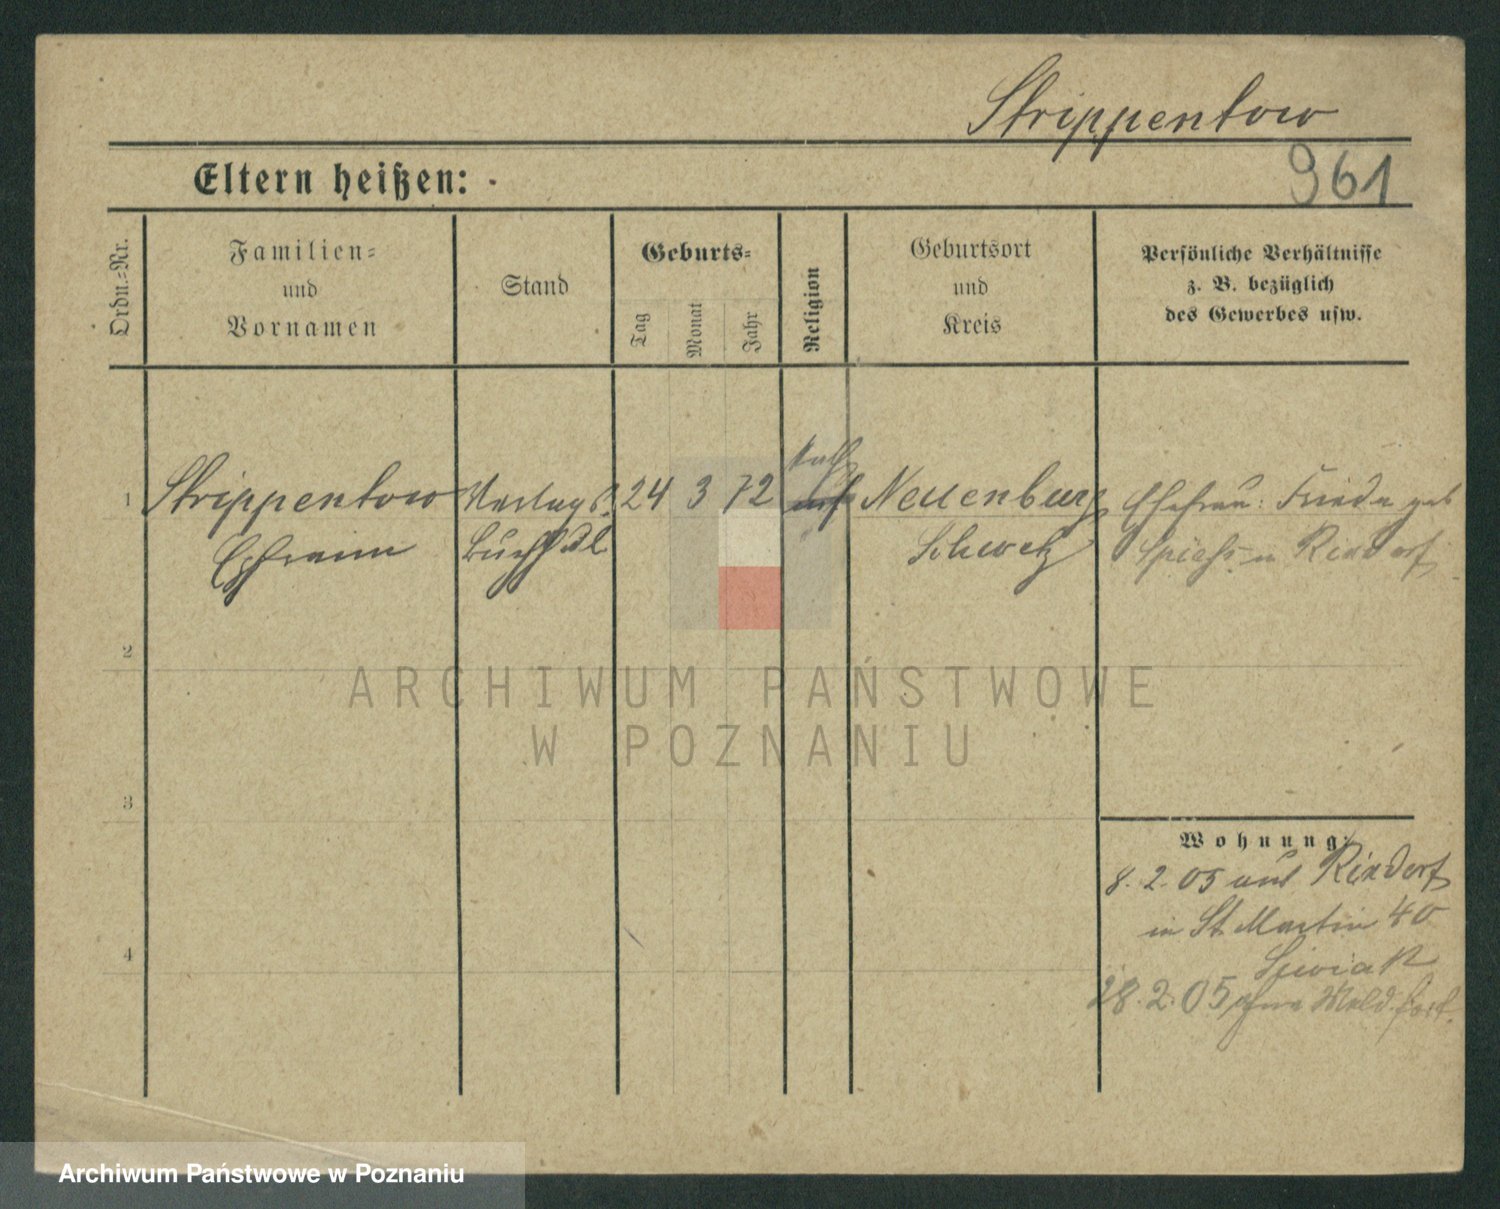 Strippentow
961
Eltern heißen:
Ordn.-Nr.
Familien-
und
Vornamen
Stand
Geburts-
Tag
Monat
Jahr
Religion
Geburtsort
und
Kreis
Persönliche Verhältnisse
z. B. bezüglich
des Gewerbes usw.
kath
1 Strippentow Verlags 24 3 72 Neuenburg Ehefrau: Frieda geb
Ephraim Buchhdl Schwetz Spiehs in Rixdorf
2
ARCHIWUM PAŃSTWOWE
W POZNANIU
3
Wohnung:
8.2.05 aus Rixdorf
in St Martin 40
4
28.2.05 ohne Meld. fort.
Archiwum Państwowe w Poznaniu